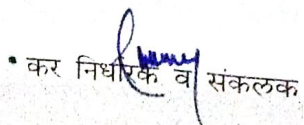 • कर निर्धारक व संकलक